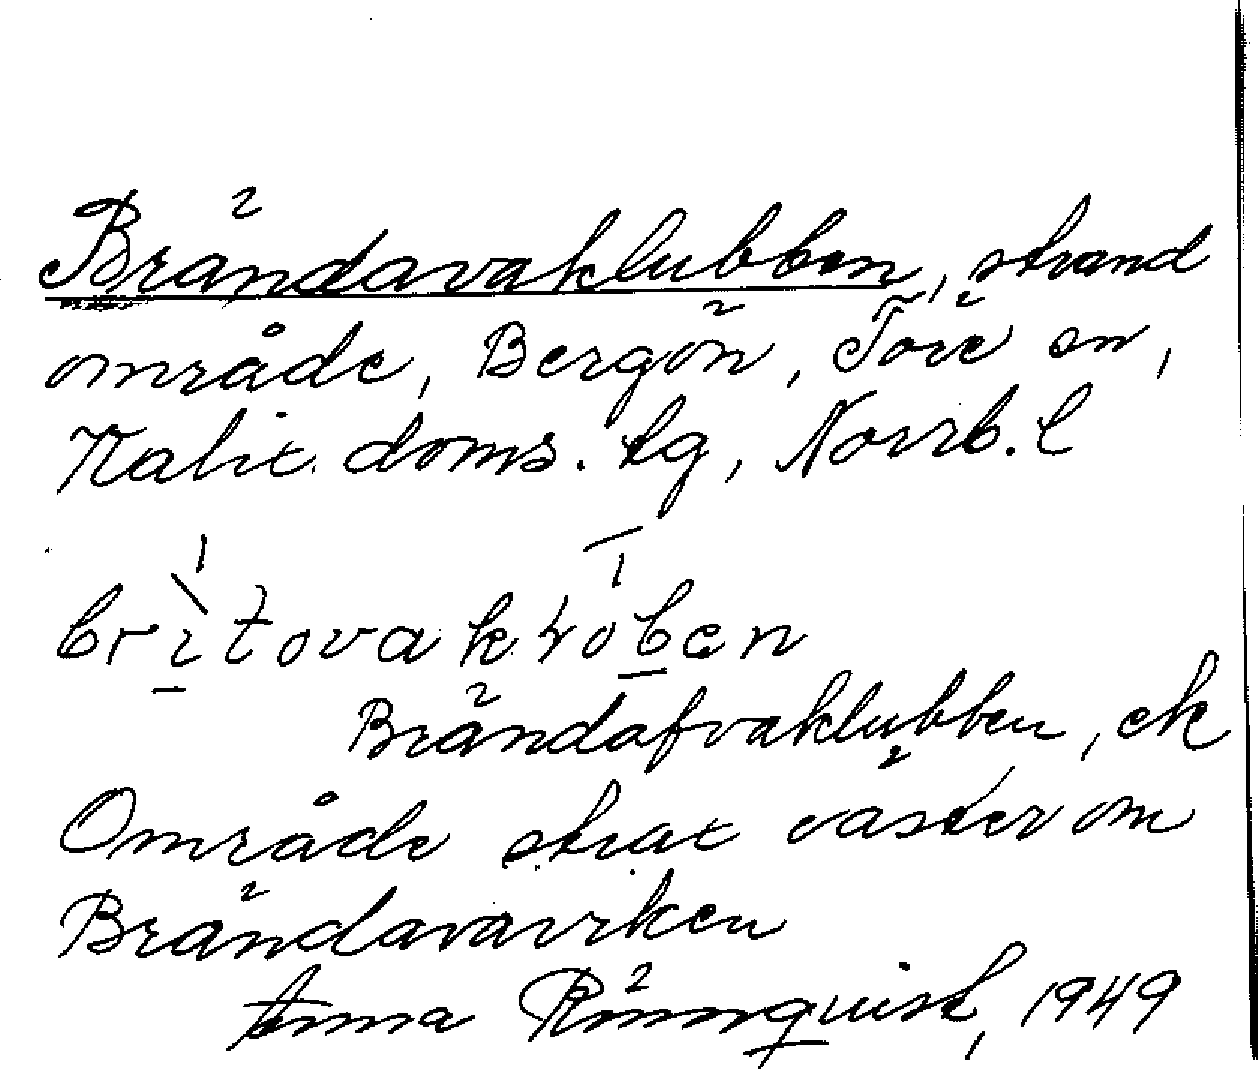 Brändavaklubben, strand
område, Bergön, Töre sn,
Kalix. doms. tg, Norrb. l
Brändafvaklubben, ek
Område strax väster om
Brändavaviken
Anna Rönnquist, 1949